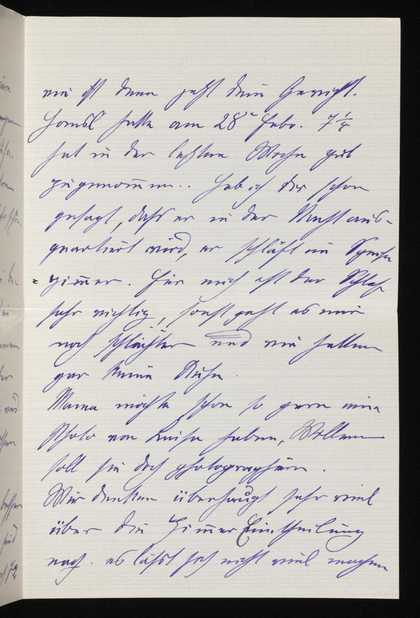 wie ist denn jetzt dein Gewicht.
hatte am 28. Febr. 7 1/4
hat in der letzten Woche gut
zugenommen.. Hab ich dir schon
gesagt, daß er in der Nacht aus-
quartiert wird, er schläft im
zimmer. Für mich ist der Schlaf
sehr wichtig, sonst geht es mir
noch schlechter und wir hatten
gar keine Ruhe.
Mama möchte schon so gern eine
Photo von Luise haben, Wollen
soll sie doch photographieren.
Wir denken überhaupt sehr viel
über die Zimmer Eintheilung
nach. es läßt sich nicht viel machen